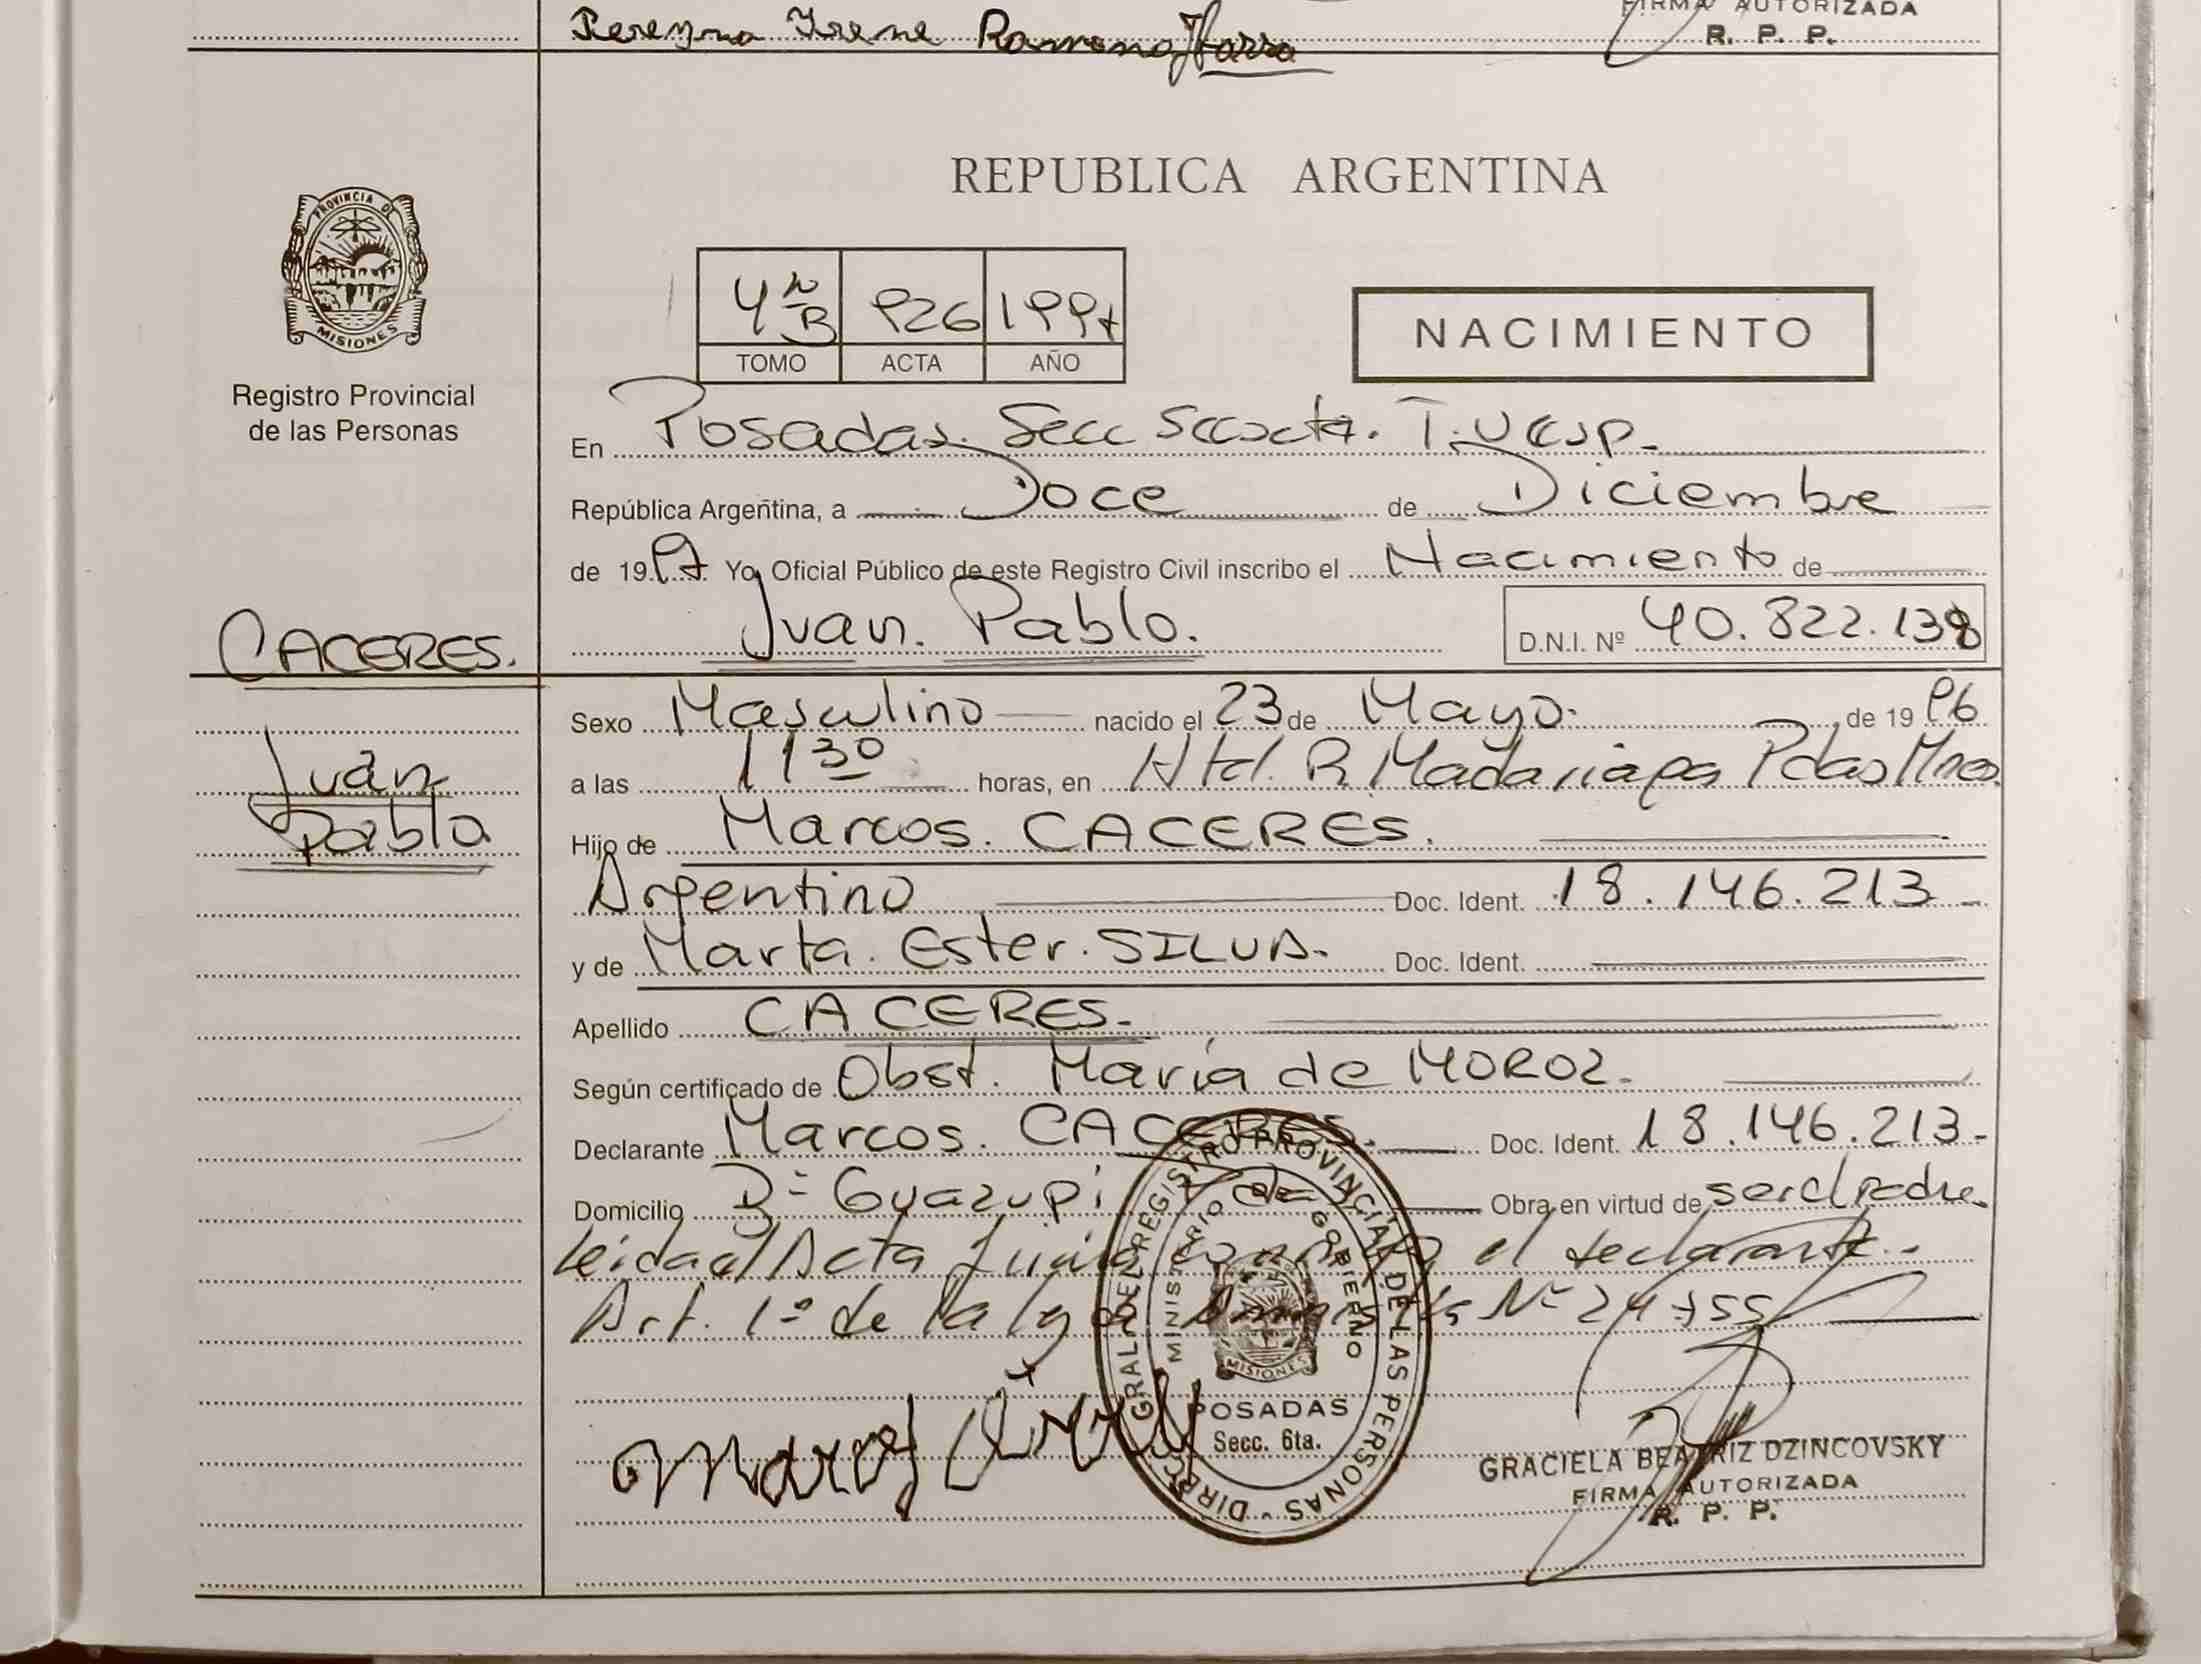 Pereyra Irene Ramona Ibarra
FIRMA AUTORIZADA
R. P. P.
PROVINCIA DE
MISIONES
Registro Provincial
de las Personas
REPUBLICA ARGENTINA
926 1997
TOMO ACTA AÑO
NACIMIENTO
En Posadas. Secc T. Vesp.
República Argentina, a Doce de Diciembre
de 19.97 Yo, Oficial Público de este Registro Civil inscribo el Nacimiento de
Juan. Pablo. D.N.I. Nº 40.822.138
CACERES.
Juan
Pablo
Sexo Masculino nacido el 23 de Mayo. de 19 96
a las 11 30 horas, en R. Madariaga Pdas Mnes.
Hijo de Marcos. CACERES.
Argentino Doc. Ident. 18.146.213
y de Marta. Ester. SILVA. Doc. Ident.
Apellido CACERES.
Según certificado de Obst. María de MOROZ.
Declarante Marcos. CACERES. Doc. Ident. 18.146.213
Domicilio Bº Guazupi Pdas Obra en virtud de ser el padre
Leida el Acta firma el declarante.
Art. 1º de la ley Nº 24.755
DIRECC. GRAL. DEL REGISTRO PROVINCIAL DE LAS PERSONAS
MINISTERIO DE GOBIERNO
MISIONES
POSADAS
Secc. 6ta.
Marcos
GRACIELA BEATRIZ DZINCOVSKY
FIRMA AUTORIZADA
R. P. P.